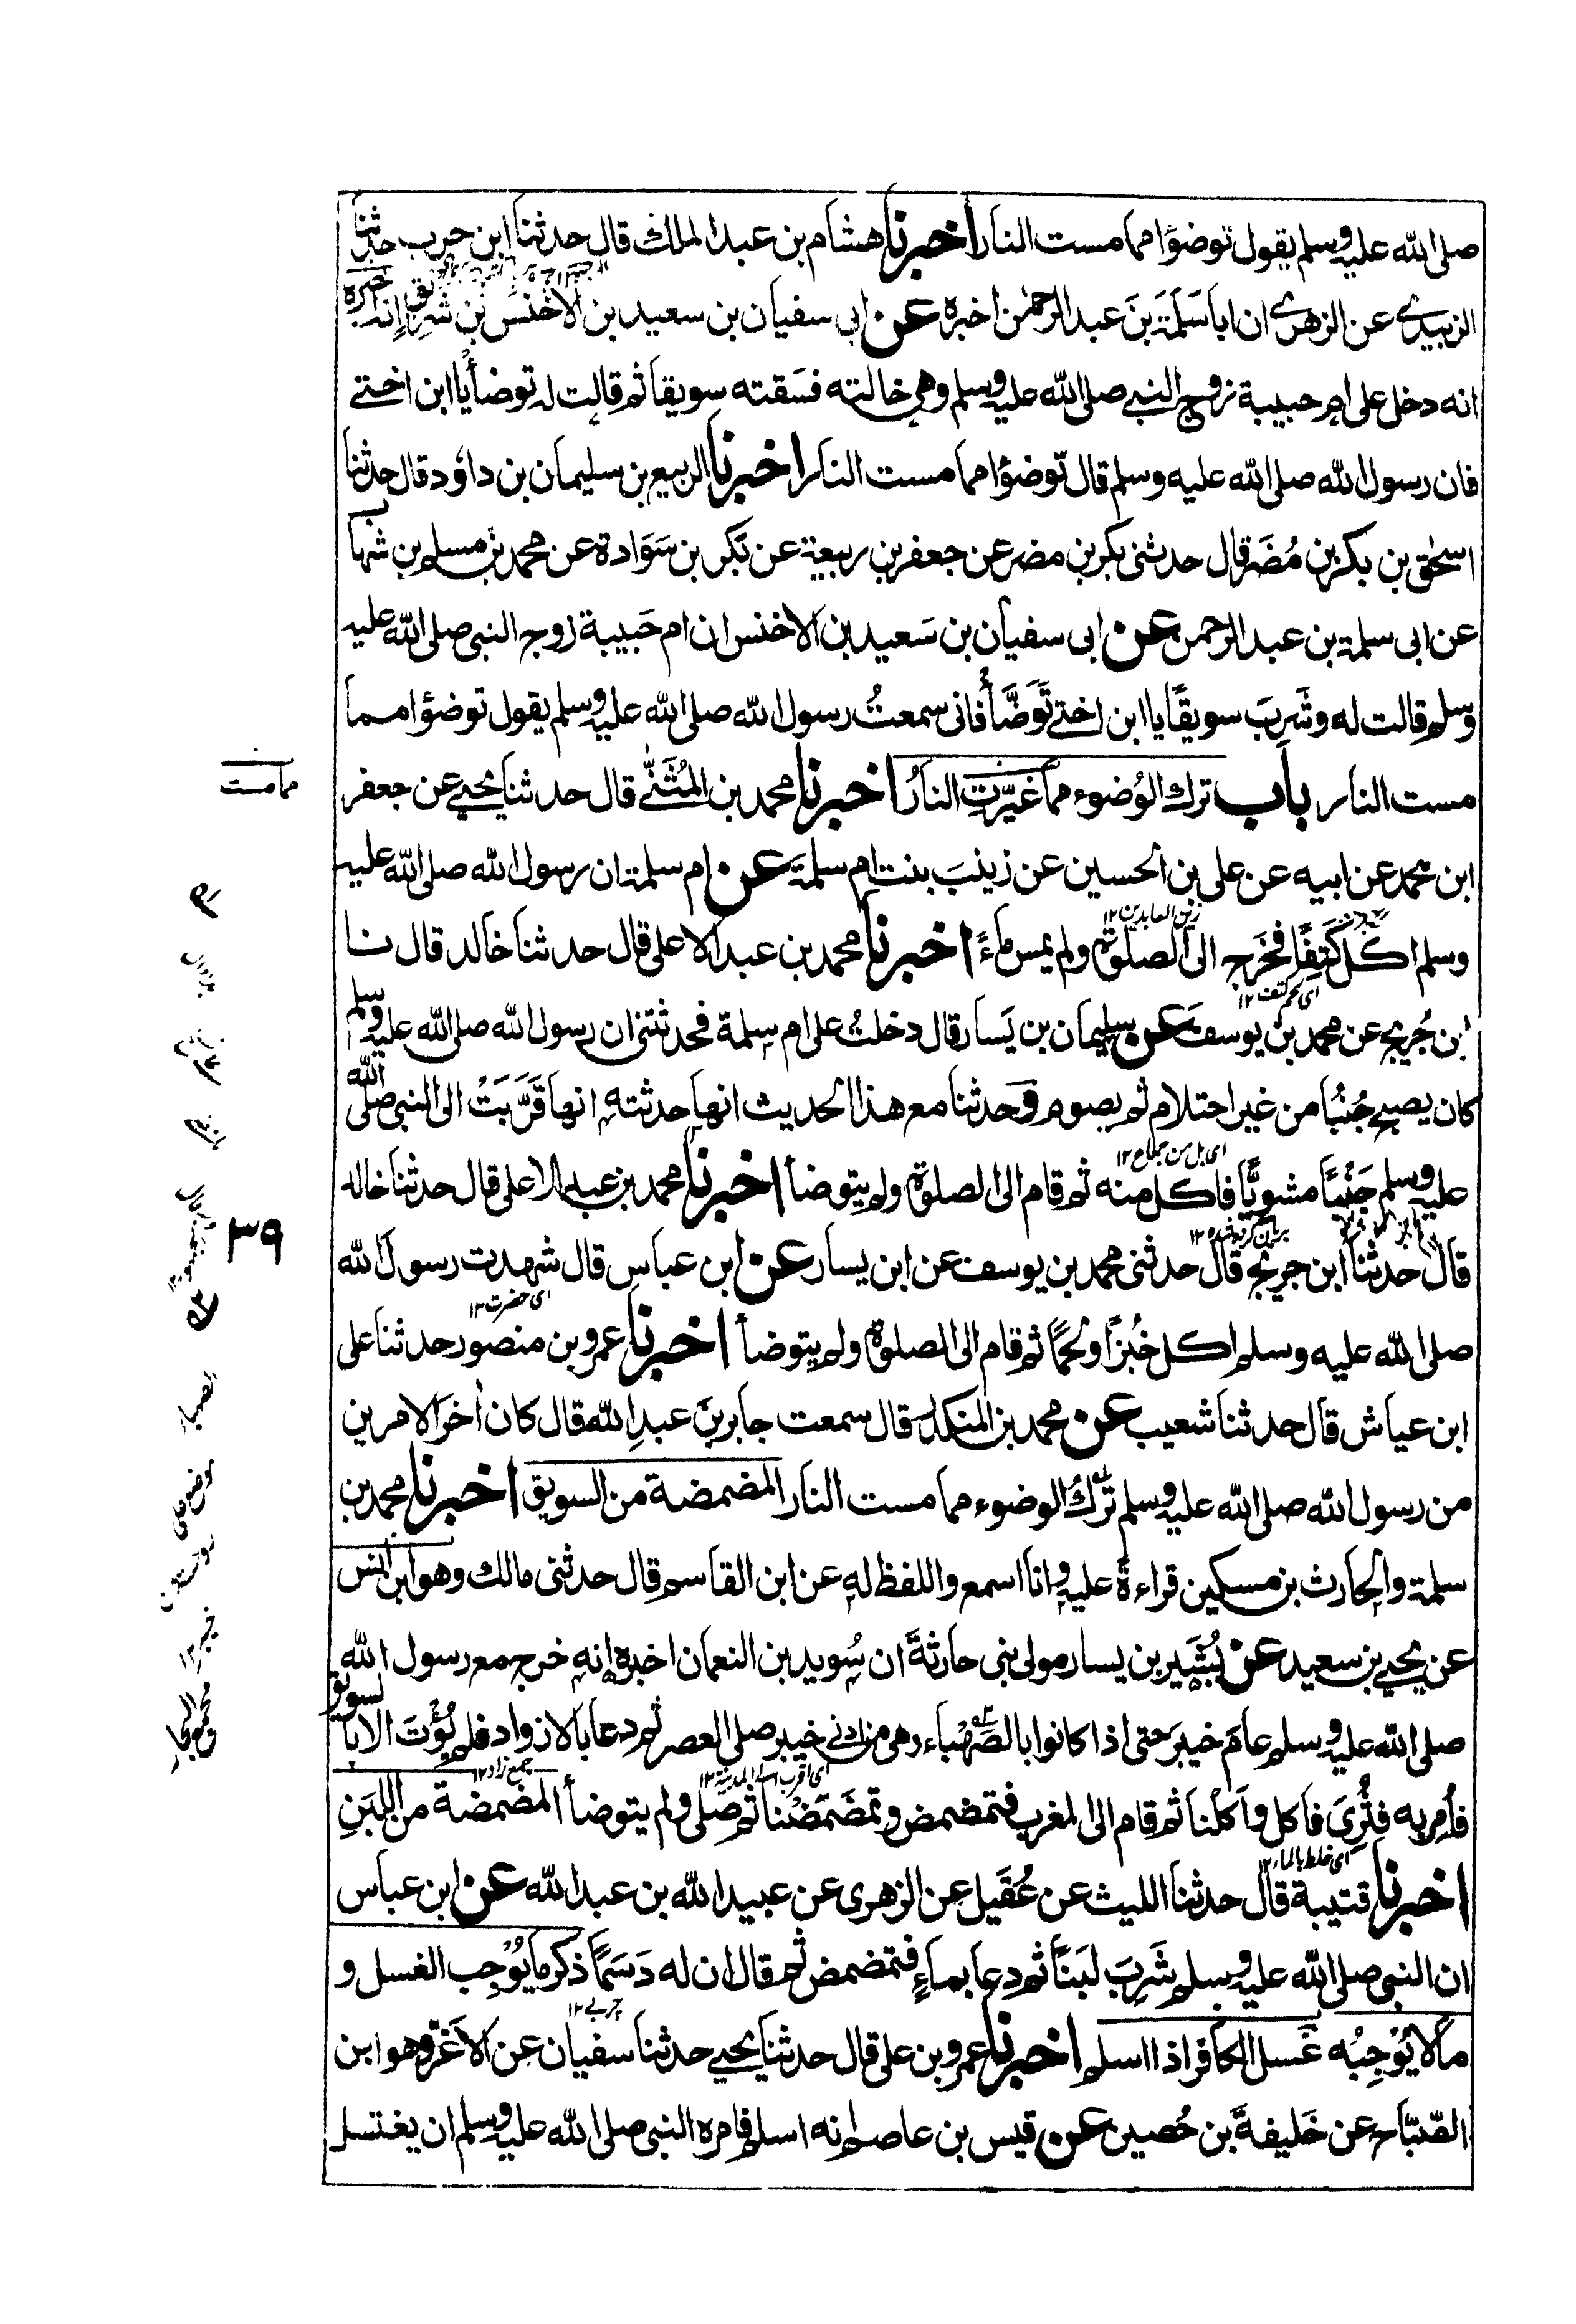 صلى الله عليه وسلم يقول توضؤا مما مست النار اخبرنا هشام بن عبد الملك قال حدثنا ابن حرب حدثنا
الزبيدي عن الزهري ان ابا سَلَمَةَ بنَ عبد الرحمٰن اخبره عن ابي سفيان بن سعيد بن الاَخْنَس بن شريق انه اخبره
انه دخل على ام حبيبة زوج النبي صلى الله عليه وسلم وهي خالته فسَقته سويقا ثم قالت له توضأ يا ابن اختي
فان رسول الله صلى الله عليه وسلم قال توضؤا مما مست النار اخبرنا الربيع بن سليمان بن داؤد قال حدثنا
اسحٰق بن بكر بن مُضَر قال حدثنى بكر بن مضر عن جعفر بن ربيعة عن بَكر بن سَوَادة عن محمد بن مسلم بن شهاب
عن ابى سلمة بن عبد الرحمن عن ابى سفيان بن سَعيد بن الاخنس ان ام حَبيبة زوج النبى صلى الله عليه
وسلم قالت له وشَرِبَ سويقًا يا ابن اختي تَوَضَّأْ فانى سمعتُ رسول الله صلى الله عليه وسلم يقول توضؤا مما
مست النار باب ترك الوُضوء مما غيَّرت النارُ اخبرنا محمد بن المُثَنّٰى قال حدثنا يحيي عن جعفر
مما مست
ابن محمد عن ابيه عن على بن الحسين عن زينبَ بنت ام سلمةَ عن ام سلمة ان رسول الله صلى الله عليه
زين العابدين ١٢
وسلم اكل كَتِفًا فخَرَج الى الصلوة ولم يمس ماءً اخبرنا محمد بن عبد الاعلى قال حدثنا خالد قال نا
اى لحم كتف ١٢
ابن جُريج عن محمد بن يوسفَ عن سليمان بن يَسار قال دخلتُ على ام سلمة فحدثتنى ان رسول الله صلى الله عليه وسلم
كان يصبح جُنُبًا من غير احتلام ثم يصوم وحدثنا مع هذا الحديث انها حدثته انها قَرَّبَتْ الى النبى صلى الله
اى بل من جماع ١٢
عليه وسلم جَنْبًا مشويًّا فاكل منه ثم قام الى الصلوة ولم يتوضأ اخبرنا محمد بن عبد الاعلى قال حدثنا خالد
٣٩
قال حدثنا ابن جريج قال حدثنى محمد بن يوسف عن ابن يسار عن ابن عباس قال شهدت رسول الله
اى حضرت ١٢
صلى الله عليه وسلم اكل خُبْزًا ولحمًا ثم قام الى الصلوة ولم يتوضأ اخبرنا عمرو بن منصور حدثنا على
ابن عياش قال حدثنا شعيب عن محمد بن المنكدر قال سمعت جابر بنَ عبدِ الله قال كان اٰخر الامرين
من رسول الله صلى الله عليه وسلم تركُ الوضوء مما مست النار المضمضة من السويق اخبرنا محمد بن
سلمة والحارث بن مسكين قراءةً عليه وانا اسمع واللفظ له عن ابن القاسم قال حدثنى مالك وهو ابن انس
عن يحيي بن سعيد عن بُشَير بن يسار مولى بنى حارثةَ ان سُويد بن النعمان اخبره انه خرج مع رسول الله
صلى الله عليه وسلم عامَ خيبرَ حتى اذا كانوا بالصَّهْباء وهى من ادنى خيبر صلى العصر ثم دعا بالازواد فلم يُؤتَ الا بالسويق
اى اقرب اسفل المدينة ١٢ جمع زاد ١٢
فاُمر به فثُرِّىَ فاكل واَكلْنا ثم قام الى المغرب فتمضمض وتمضمضْنا ثم صلى ولم يتوضأ المضمضة من اللبَنِ
اى خلط بالماء ١٢
اخبرنا قتيبة قال حدثنا الليث عن عُقَيل عن الزهرى عن عبيد الله بن عبد الله عن ابن عباس
ان النبى صلى الله عليه وسلم شَرِبَ لَبَنًا ثم دعا بماءٍ فتمضمض ثم قال ان له دَسَمًا ذكر ما يُوْجب الغسل و
چربي ١٢
ما لا يُوْجِبُه غُسل الكافر اذا اسلم اخبرنا عمرو بن على قال حدثنا يحيي حدثنا سفيان عن الاَغرّ وهو ابن
الصَّبّاح عن خَليفةَ بن حُصين عن قيس بن عاصم انه اسلم فامره النبى صلى الله عليه وسلم ان يغتسل